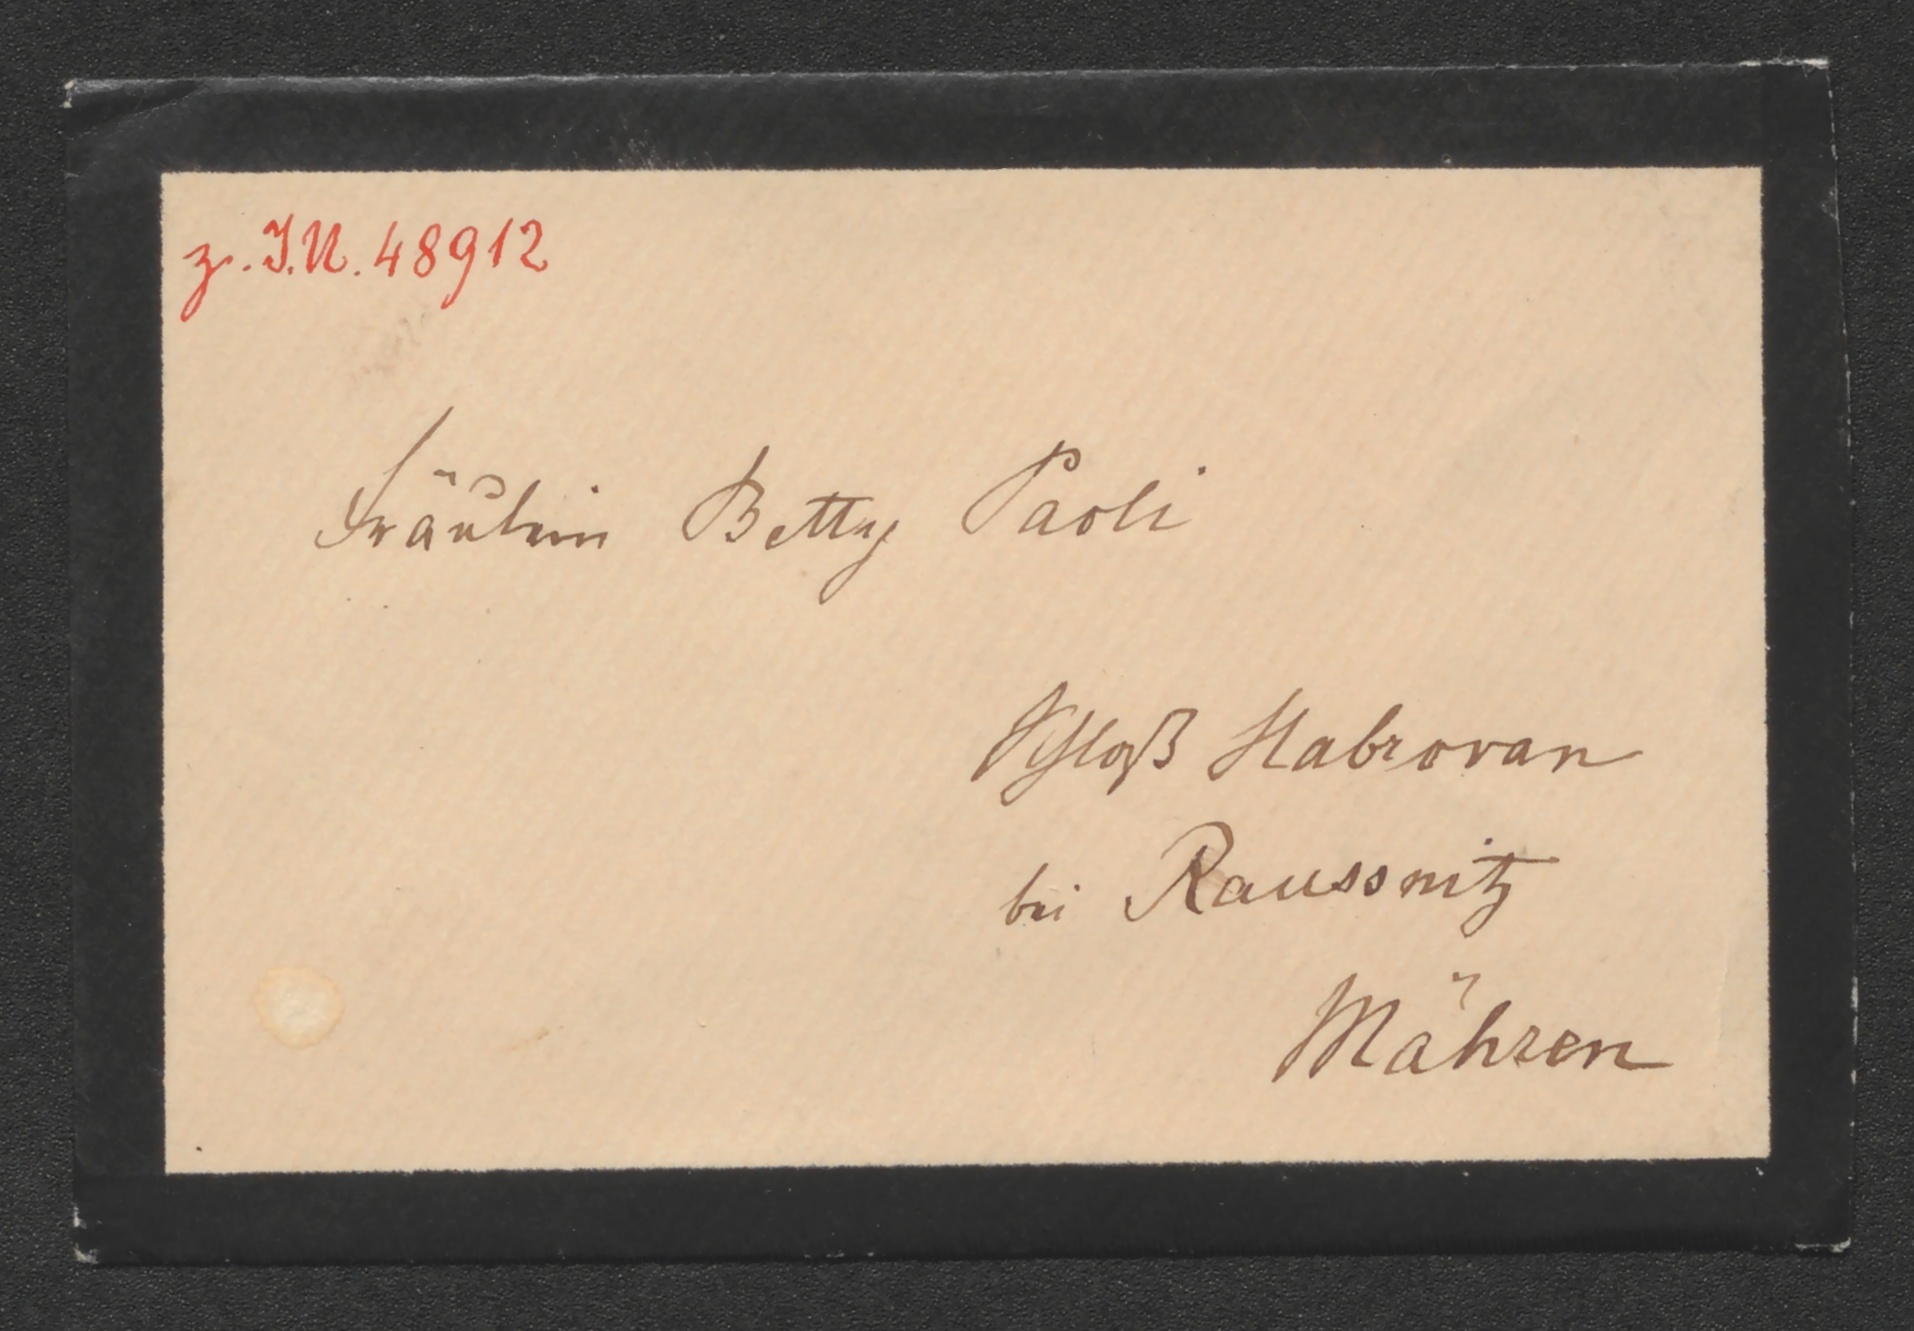 z. I.N. 48912
Fräulein Betty Paoli
Schloß Habrovan
bei Raussnitz
Mähren